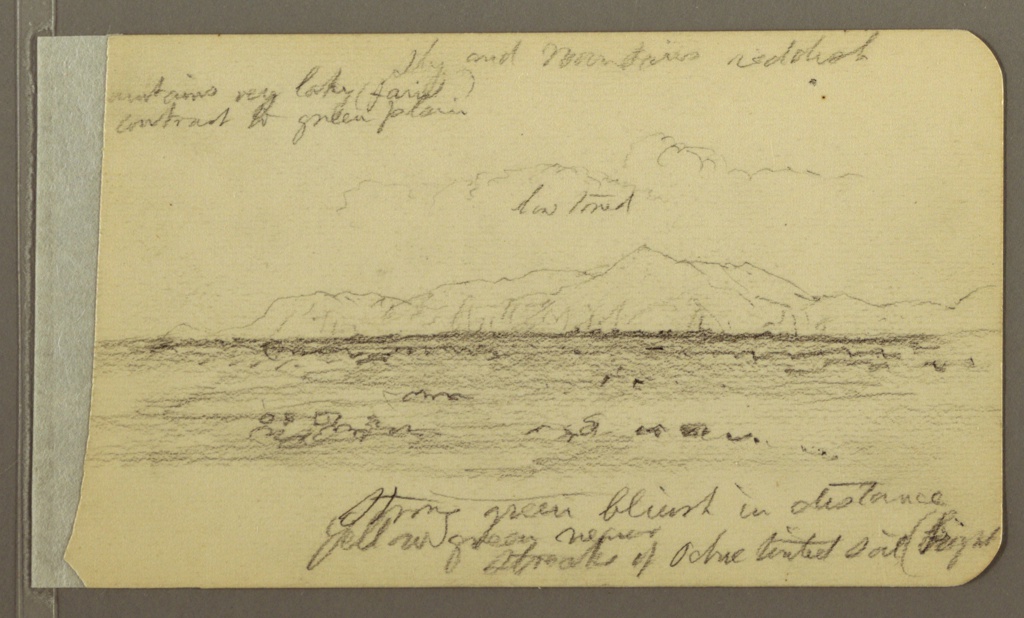 Sky and Mountains reddish
untains very laky (faint)
contrast to green plain
low toned
Strong green bluish in distance
yellow green nearer
streaks of Ochre tinted soil (bright